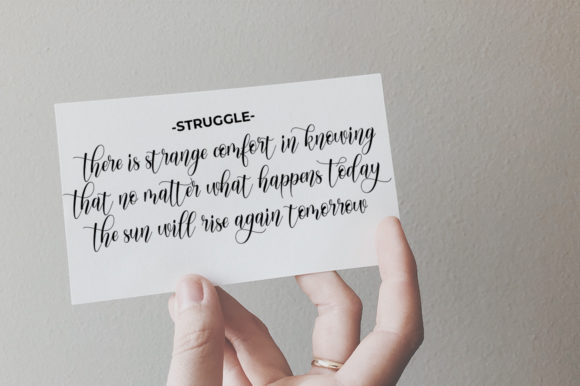 -STRUGGLE-
there is strange comfort in knowing
that no matter what happens today
the sun will rise again tomorrow